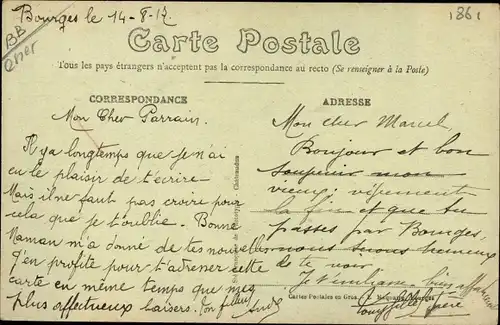 Bourges le 14-8-17
1861
BB
Cher
Carte Postale
Tous les pays étrangers n'acceptent pas la correspondance au recto (Se renseigner à la Poste)
CORRESPONDANCE
Mon Cher Parrain.
Il ya longtemps que je n'ai
eu le plaisir de t'écrire
Mais il ne faut pas croire pour
cela que je t'oublie. Bonne
Maman m'a donné de tes nouvelles
J'en profite pour t'adresser cette
carte en même temps que mes
plus affectueux baisers. Ton filleul
André
ADRESSE
Mon cher Marcel
Bonjour et bon
souvenir mon
vieux; vivement
la fin et que tu
passes par Bourges,
nous serons heureux
de te voir
Je t'embrasse bien
Cartes Postales en Gros